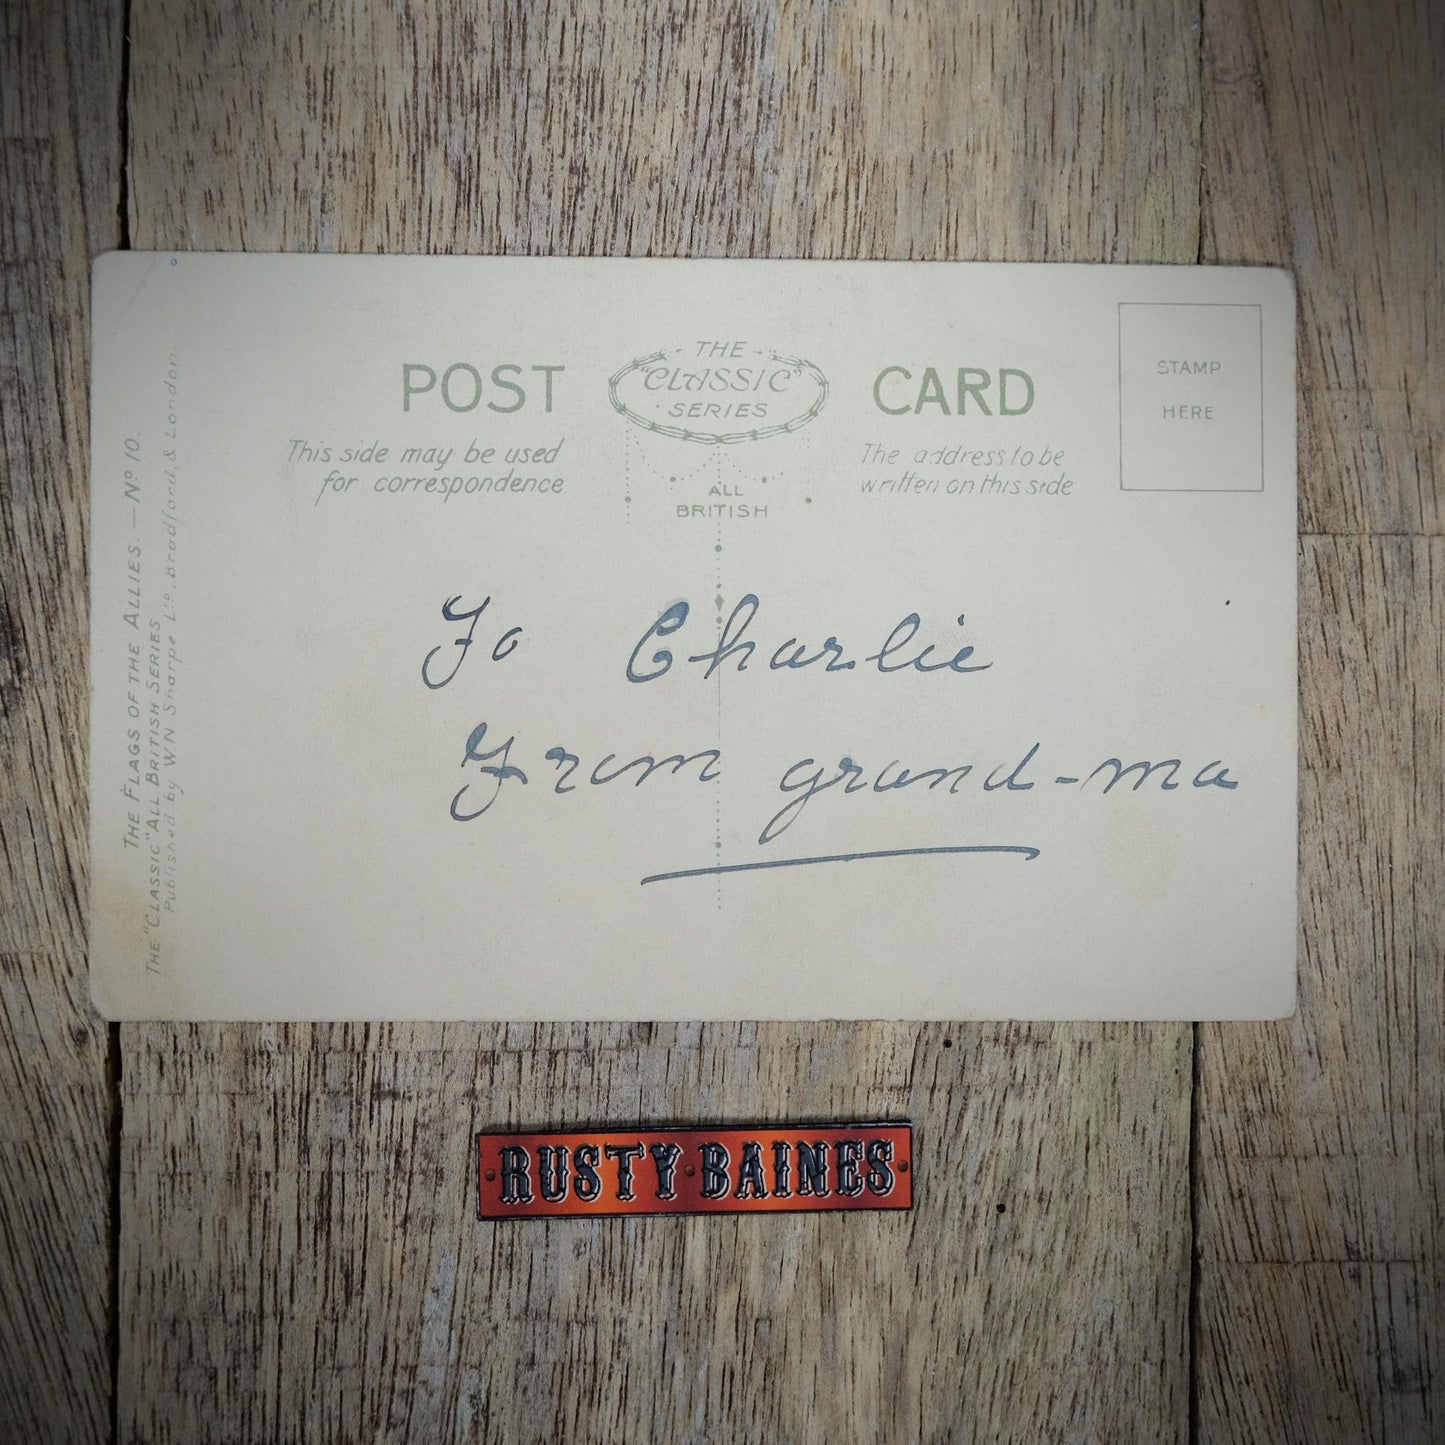 POST
THE
"CLASSIC"
SERIES
CARD
This side may be used
for correspondence
ALL
BRITISH
The address to be
written on this side
STAMP
HERE
THE FLAGS OF THE ALLIES. — Nº 10.
THE "CLASSIC" ALL BRITISH SERIES
Published by W.N. Sharpe Lᵀᴰ, Bradford & London.
To Charlie
From grand-ma
RUSTY·BAINES